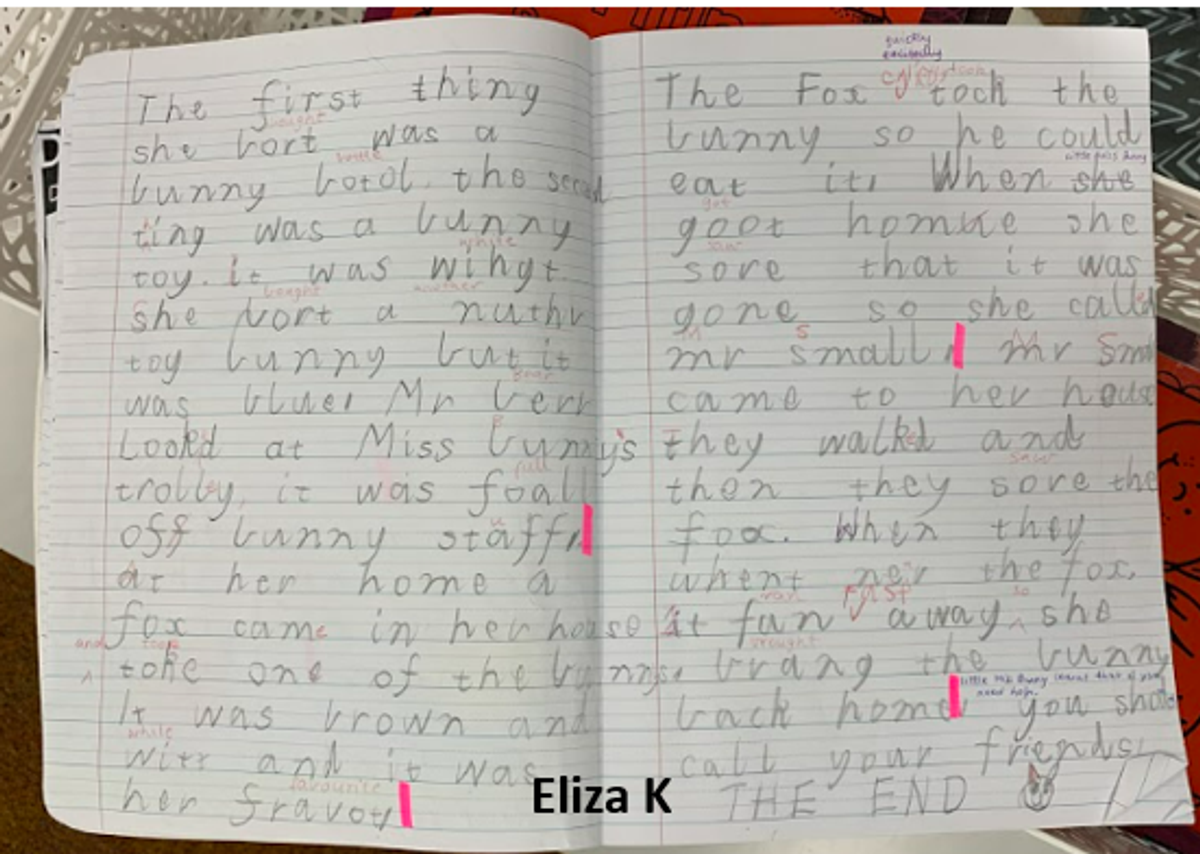 The first thing
bought
she bort was a
bottle
bunny botol. the second
ting was a bunny
white
toy. it was wihgt.
bought another
She bort a nuthr
toy bunny but it
Bear
was blue. Mr berr
Looked at Miss bunny's
full
trolley, it was foall
off bunny staff.
at her home a
fox came in her house
and took
toke one of the bunnys.
It was brown and
white
witt and it was
favourite
her fravoy
quickly
excitedly
The Fox took the
bunny so he could
little miss bunny
eat it. When she
got
goot home she
saw
sore that it was
gone so she called
Mr Small. Mr Sm
came to her house
they walked and
saw
then they sore the
fox. When they
whent ner the fox,
ran fast so
it fun away she
brought
brang the bunny
little miss bunny learnt that if you
need help.
back home. you should
call your friends.
THE END
Eliza K